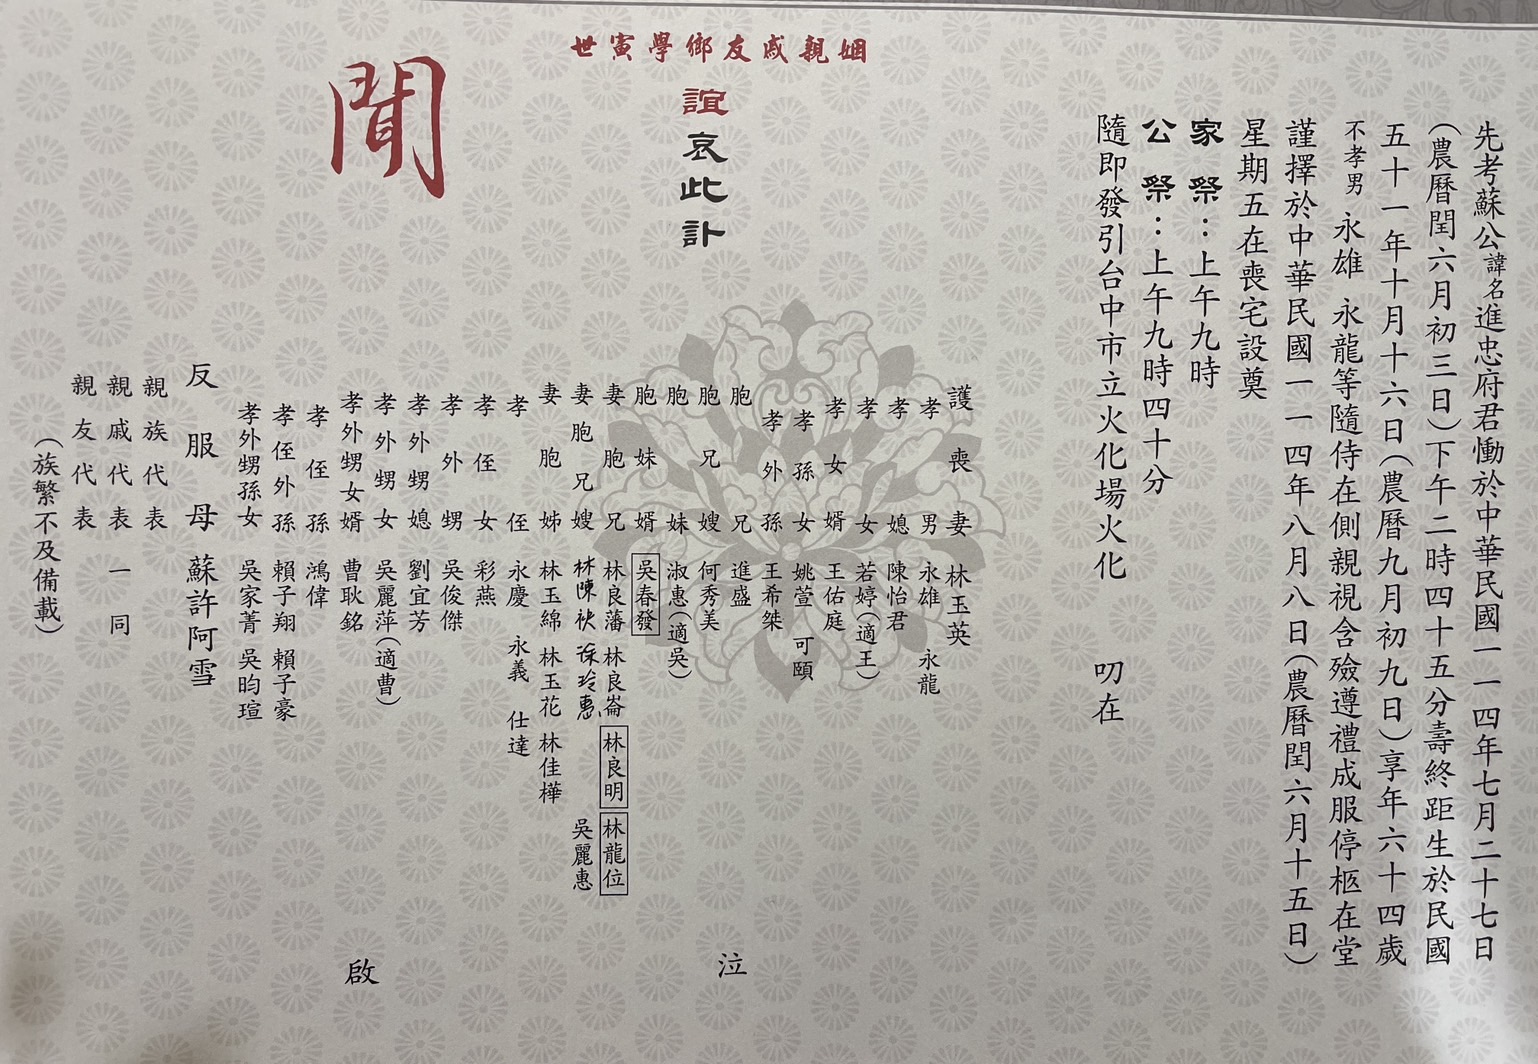 先考蘇公諱名進忠府君慟於中華民國一一四年七月二十七日
(農曆閏六月初三日)下午二時四十五分壽終距生於民國
五十一年十月十六日(農曆九月初九日)享年六十四歲
不孝男 永雄 永龍等隨侍在側親視含殮遵禮成服停柩在堂
謹擇於中華民國一一四年八月八日(農曆閏六月十五日)
星期五在喪宅設奠
家祭:上午九時
公祭:上午九時四十分
隨即發引台中市立火化場火化 叨在
姻親戚友鄉學寅世
誼哀此訃
聞
護喪妻 林玉英
孝男 永雄 永龍
孝媳 陳怡君
孝女 若婷(適王)
孝女婿 王佑庭
孝孫女 姚萱 可頤
孝外孫 王希桀
胞兄 進盛
胞兄嫂 何秀美
胞妹 淑惠(適吳)
胞妹婿 吳春發
妻胞兄 林良藩 林良崙 林良明 林龍位
妻胞兄嫂 林陳秋 徐玲惠 吳麗惠
妻胞姊 林玉綿 林玉花 林佳樺
孝侄 永慶 永義 仕達
孝侄女 彩燕
孝外甥 吳俊傑
孝外甥媳 劉宜芳
孝外甥女 吳麗萍(適曹)
孝外甥女婿 曹耿銘
孝侄孫 鴻偉
孝侄外孫 賴子翔 賴子豪
孝外甥孫女 吳家菁 吳昀瑄
泣
反服母 蘇許阿雪
親族代表
親戚代表一同
親友代表
(族繁不及備載)
啟